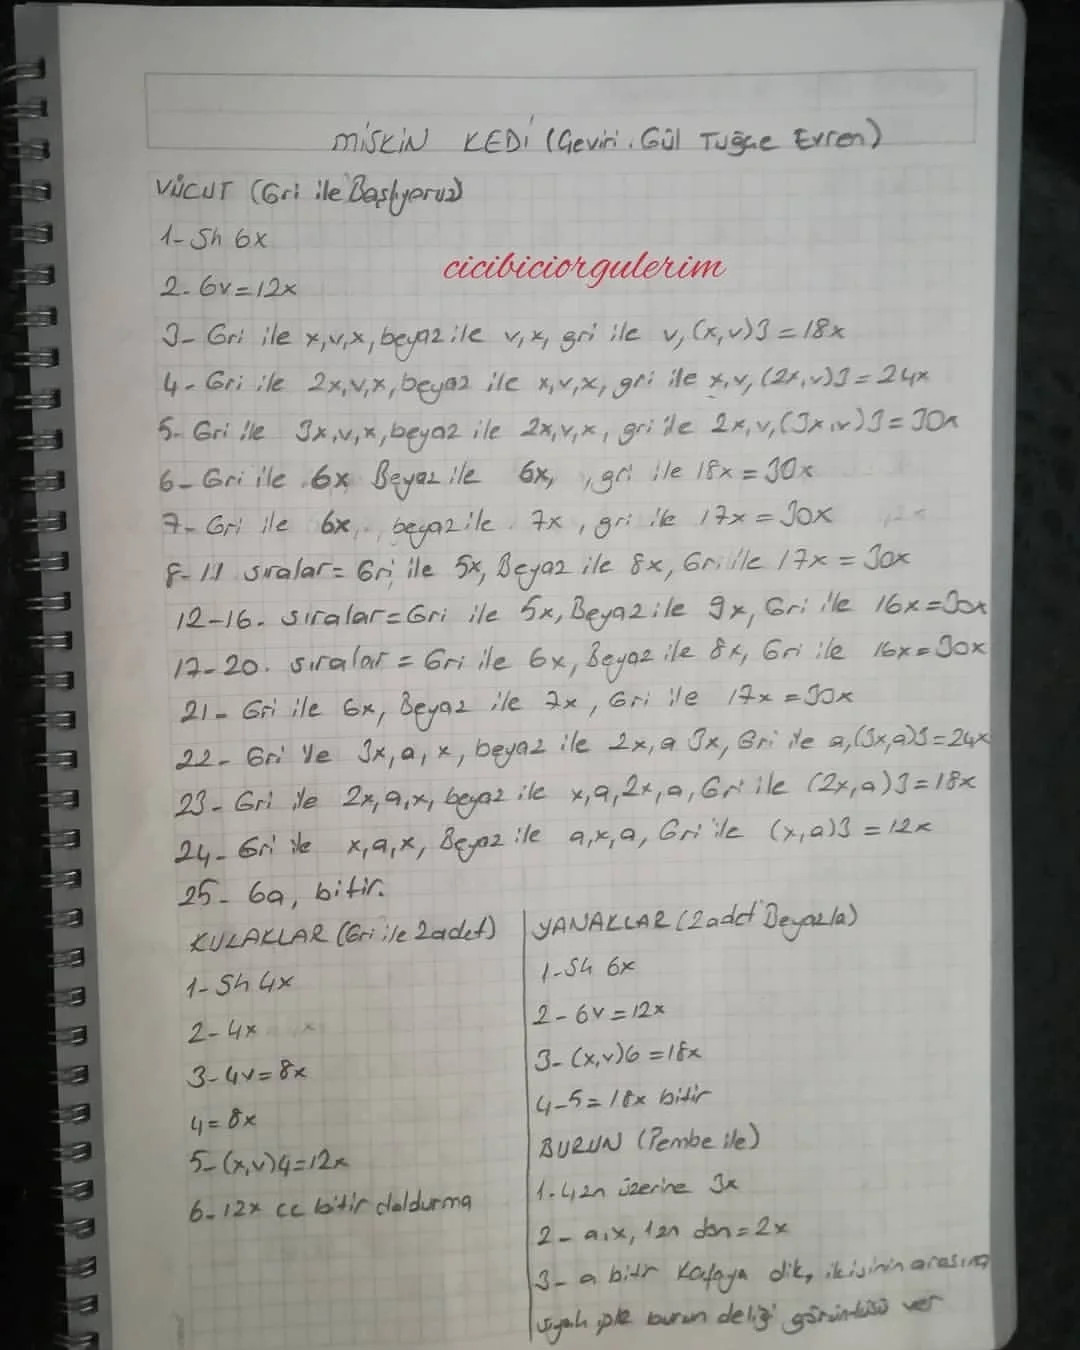 MİSKİN KEDİ (Çeviri. Gül Tuğçe Evren)
VÜCUT (Gri ile Başlıyoruz)
1- Sh 6x
cicibiciorgulerim
2- 6v=12x
3- Gri ile x,v,x, beyaz ile v,x, gri ile v,(x,v)3=18x
4- Gri ile 2x,v,x, beyaz ile x,v,x, gri ile x,v,(2x,v)3=24x
5- Gri ile 3x,v,x, beyaz ile 2x,v,x, gri ile 2x,v,(3x,v)3=30x
6- Gri ile 6x Beyaz ile 6x, gri ile 18x=30x
7- Gri ile 6x, beyaz ile 7x, gri ile 17x=30x
8-11 sıralar= Gri ile 5x, Beyaz ile 8x, Gri ile 17x=30x
12-16. sıralar=Gri ile 5x, Beyaz ile 9x, Gri ile 16x=30x
17-20. sıralar = Gri ile 6x, Beyaz ile 8x, Gri ile 16x=30x
21- Gri ile 6x, Beyaz ile 7x, Gri ile 17x=30x
22- Gri ile 3x,a,x, beyaz ile 2x,a 3x, Gri ile a,(3x,a)3=24x
23- Gri ile 2x,a,x, beyaz ile x,a,2x,a, Gri ile (2x,a)3=18x
24- Gri ile x,a,x, Beyaz ile a,x,a, Gri ile (x,a)3=12x
25- 6a, bitir.
KULAKLAR (Gri ile 2 adet)
1- Sh 4x
2- 4x
3- 4v=8x
4= 8x
5- (x,v)4=12x
6- 12x cc bitir doldurma
YANAKLAR (2 adet Beyazla)
1- Sh 6x
2- 6v=12x
3- (x,v)6=18x
4-5=18x bitir
BURUN (Pembe ile)
1- 4zn üzerine 3x
2- a,x, 1zn dön=2x
3- a bitir kafaya dik, ikisinin arasına
siyah iple burun deliği görüntüsü ver